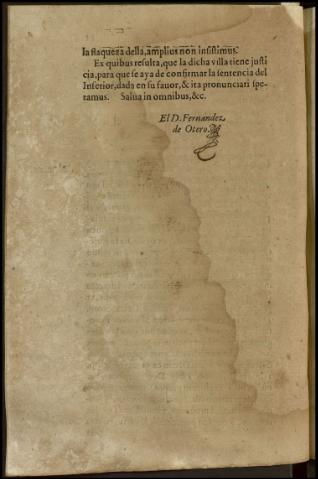 la flaqueza della, amplius non insistimus.
Ex quibus resulta, que la dicha villa tiene justi
cia, para que se aya de confirmar la sentencia del
Inferior, dada en su fauor, & ita pronunciari spe-
ramus. Salua in omnibus, &c.
El D. Fernandez
de Otero.